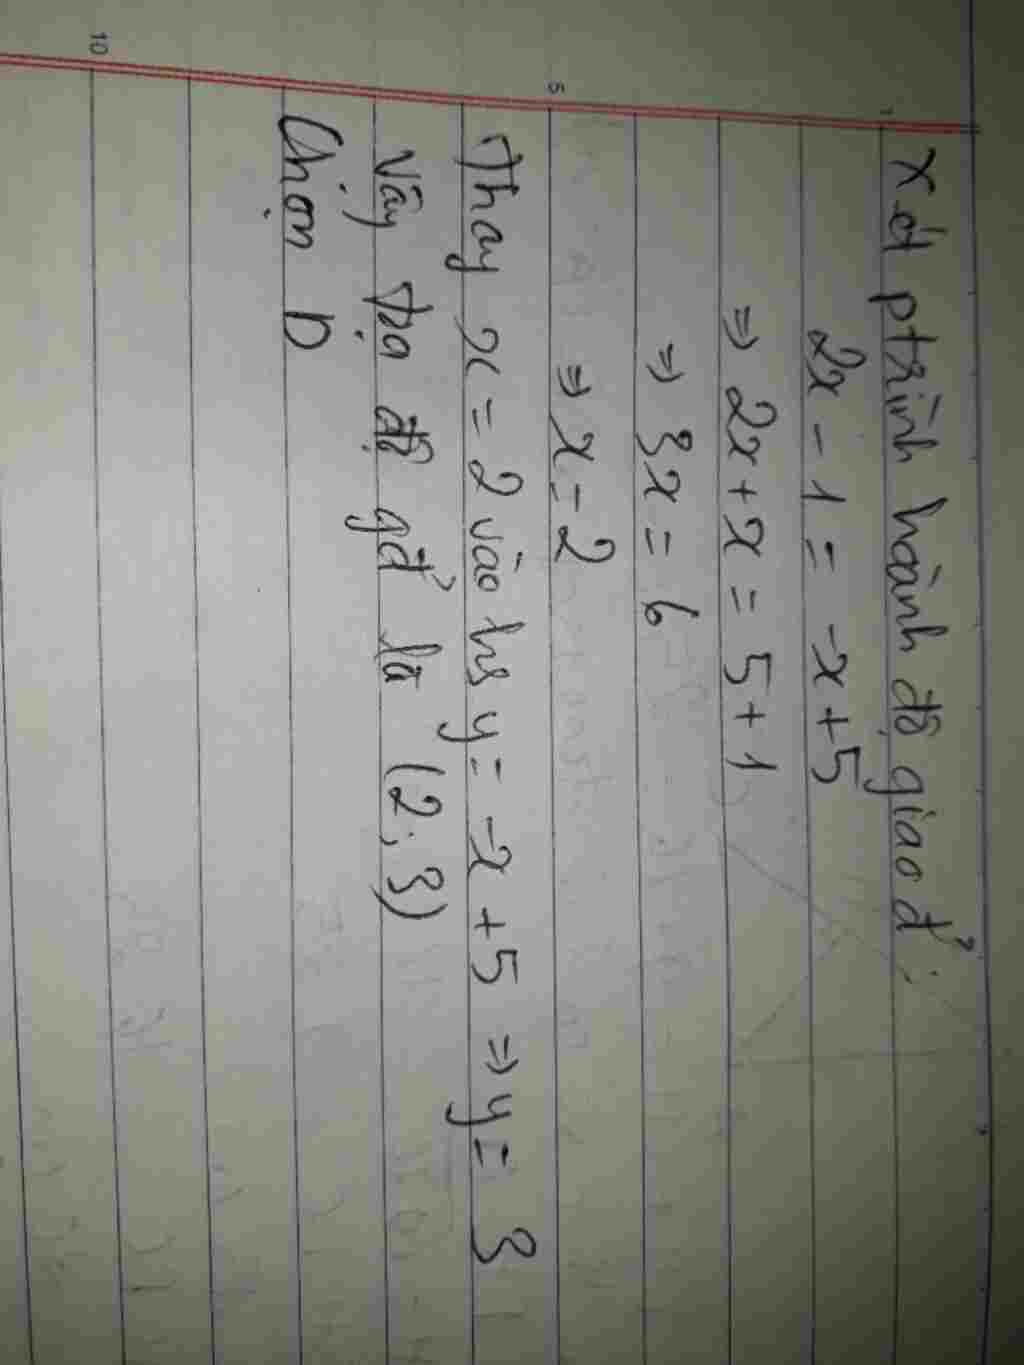 xét ptrình hoành độ giao đ':
2x - 1 = -x + 5
=> 2x + x = 5 + 1
=> 3x = 6
=> x = 2
Thay x = 2 vào hs y = -x + 5 => y = 3
Vậy tọa độ gđ' là (2; 3)
Chọn D
1
5
10